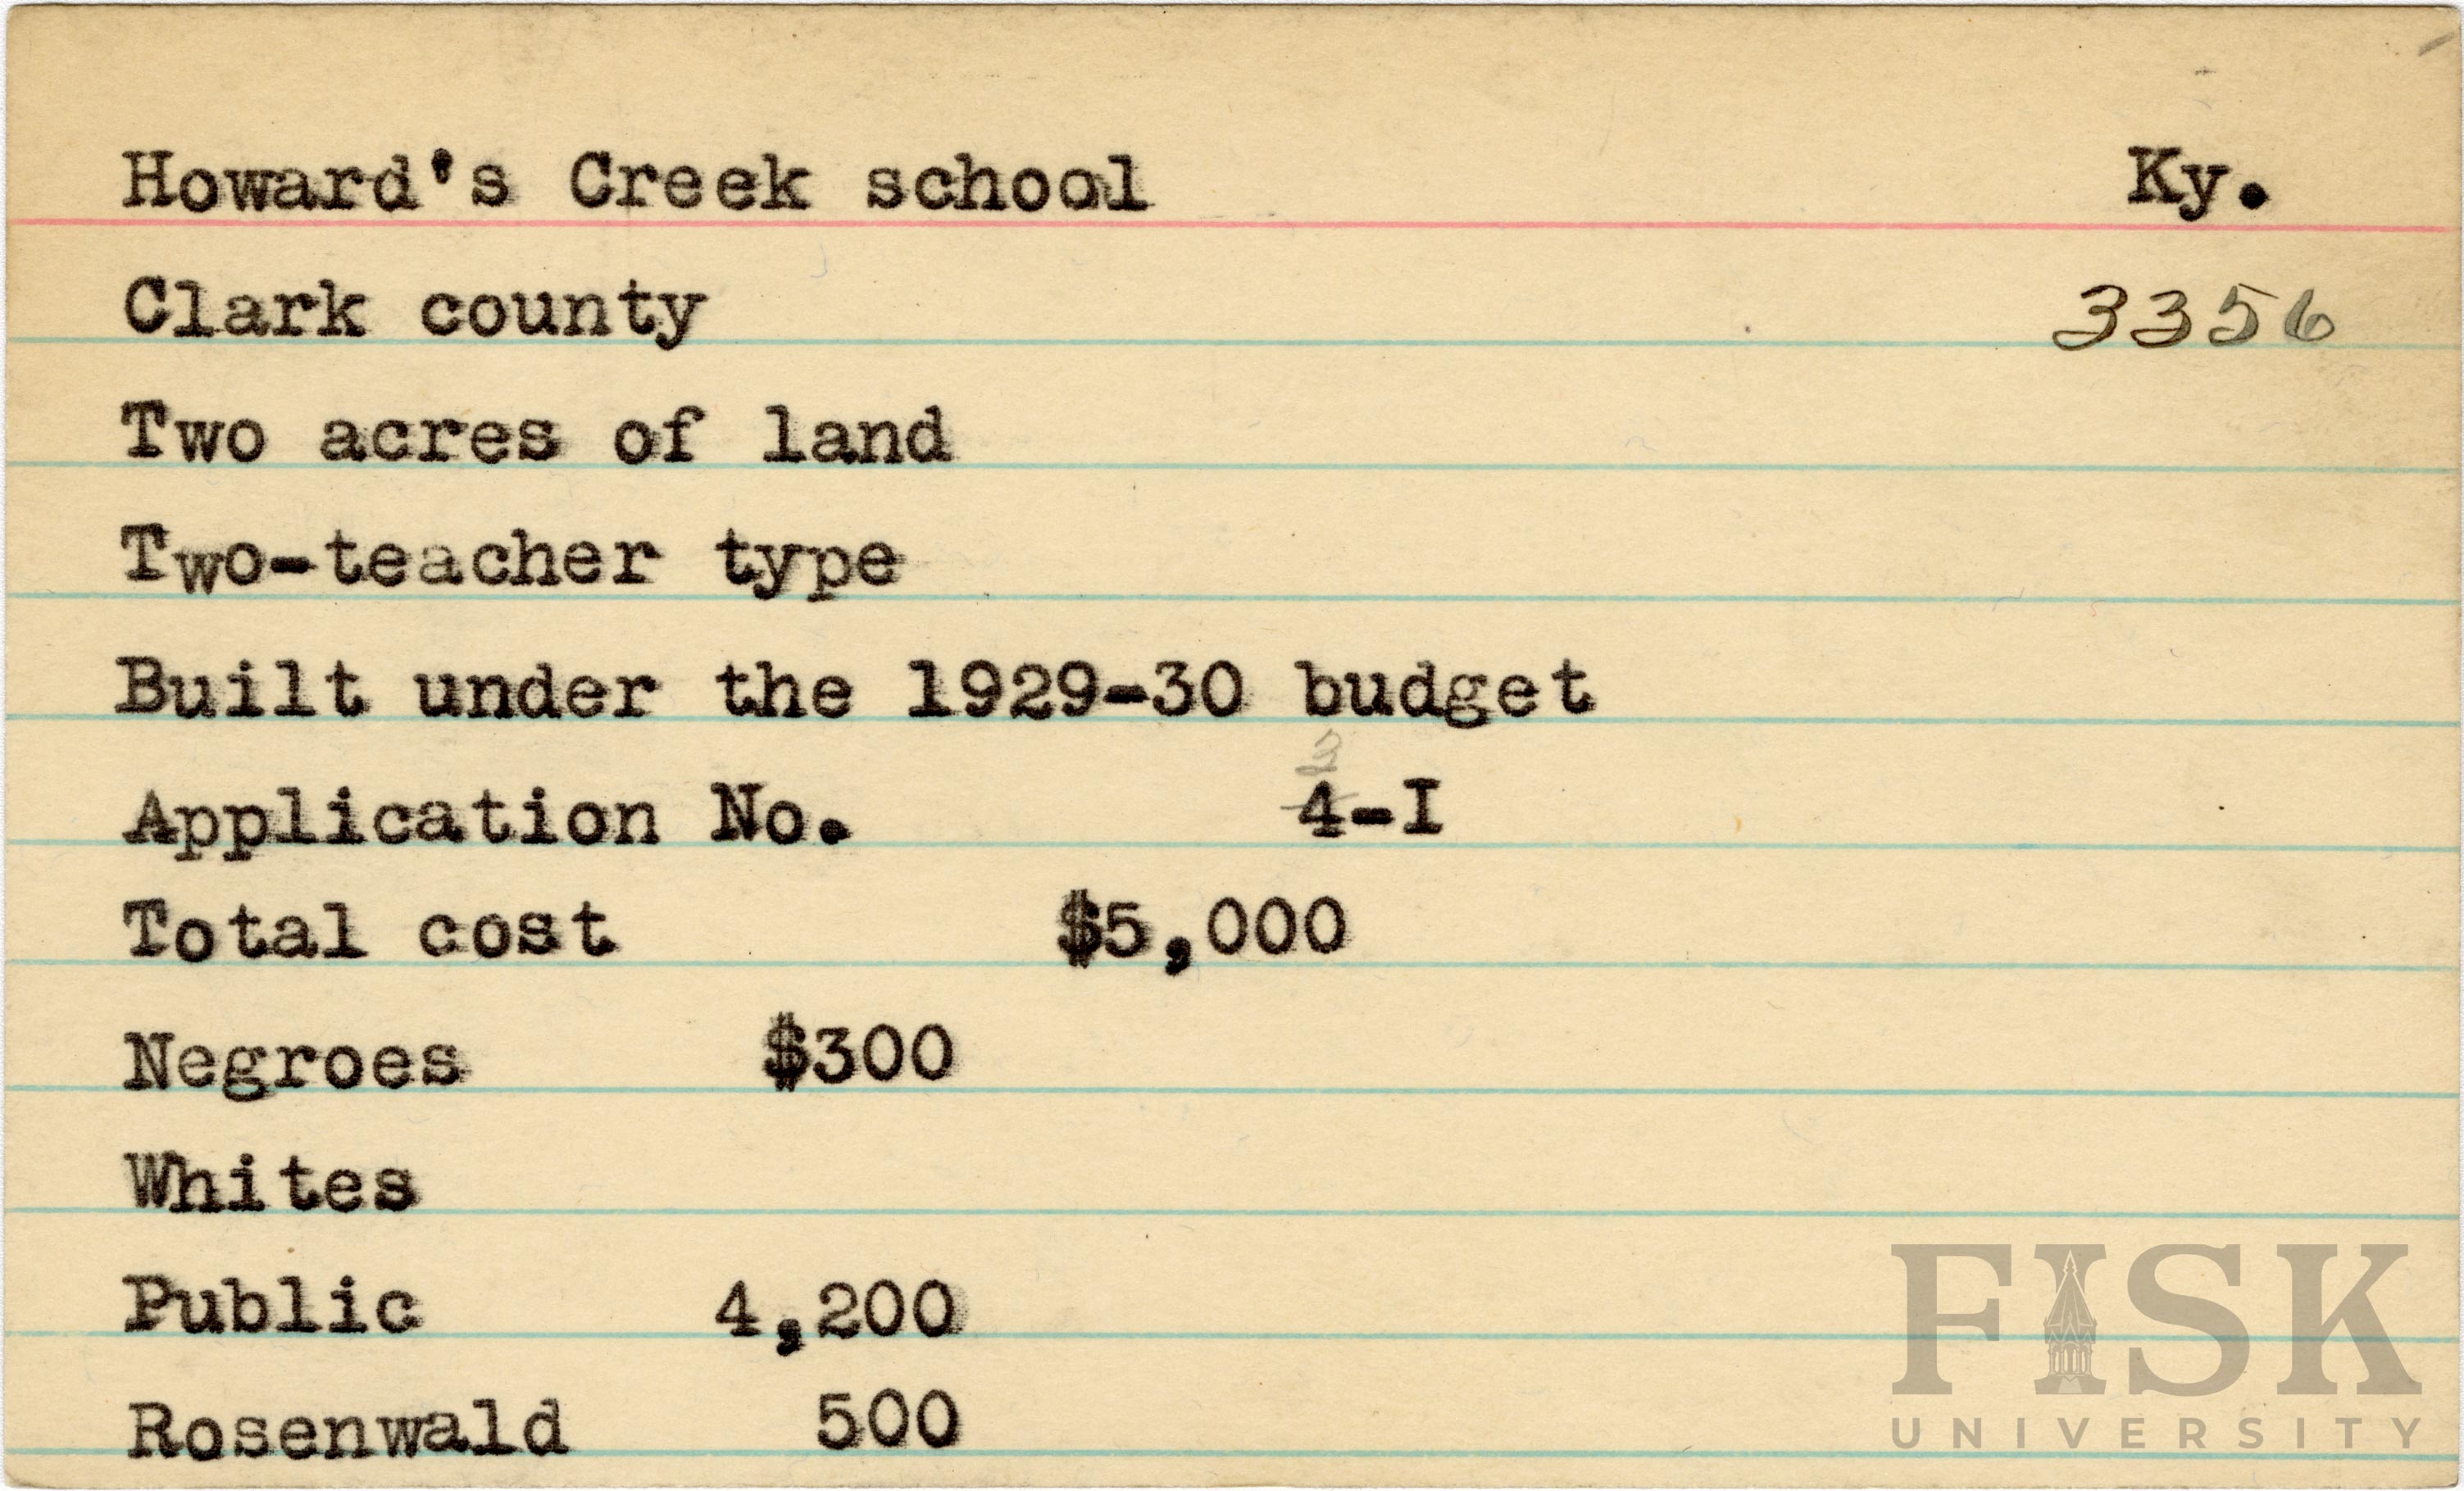 Howard's Creek school Ky.
Clark county 3356
Two acres of land
Two-teacher type
Built under the 1929-30 budget
3
Application No. 4-I
Total cost $5,000
Negroes $300
Whites
Public 4,200
Rosenwald 500
FISK
UNIVERSITY